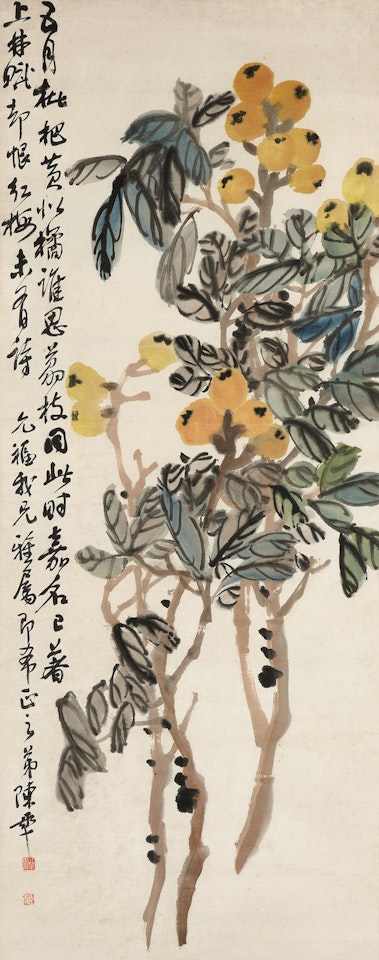 五月枇杷黄似橘誰思荔枝同此時嘉名已著
上林賦却恨紅梅未有詩 允福我兄雅屬即希正之弟陳年